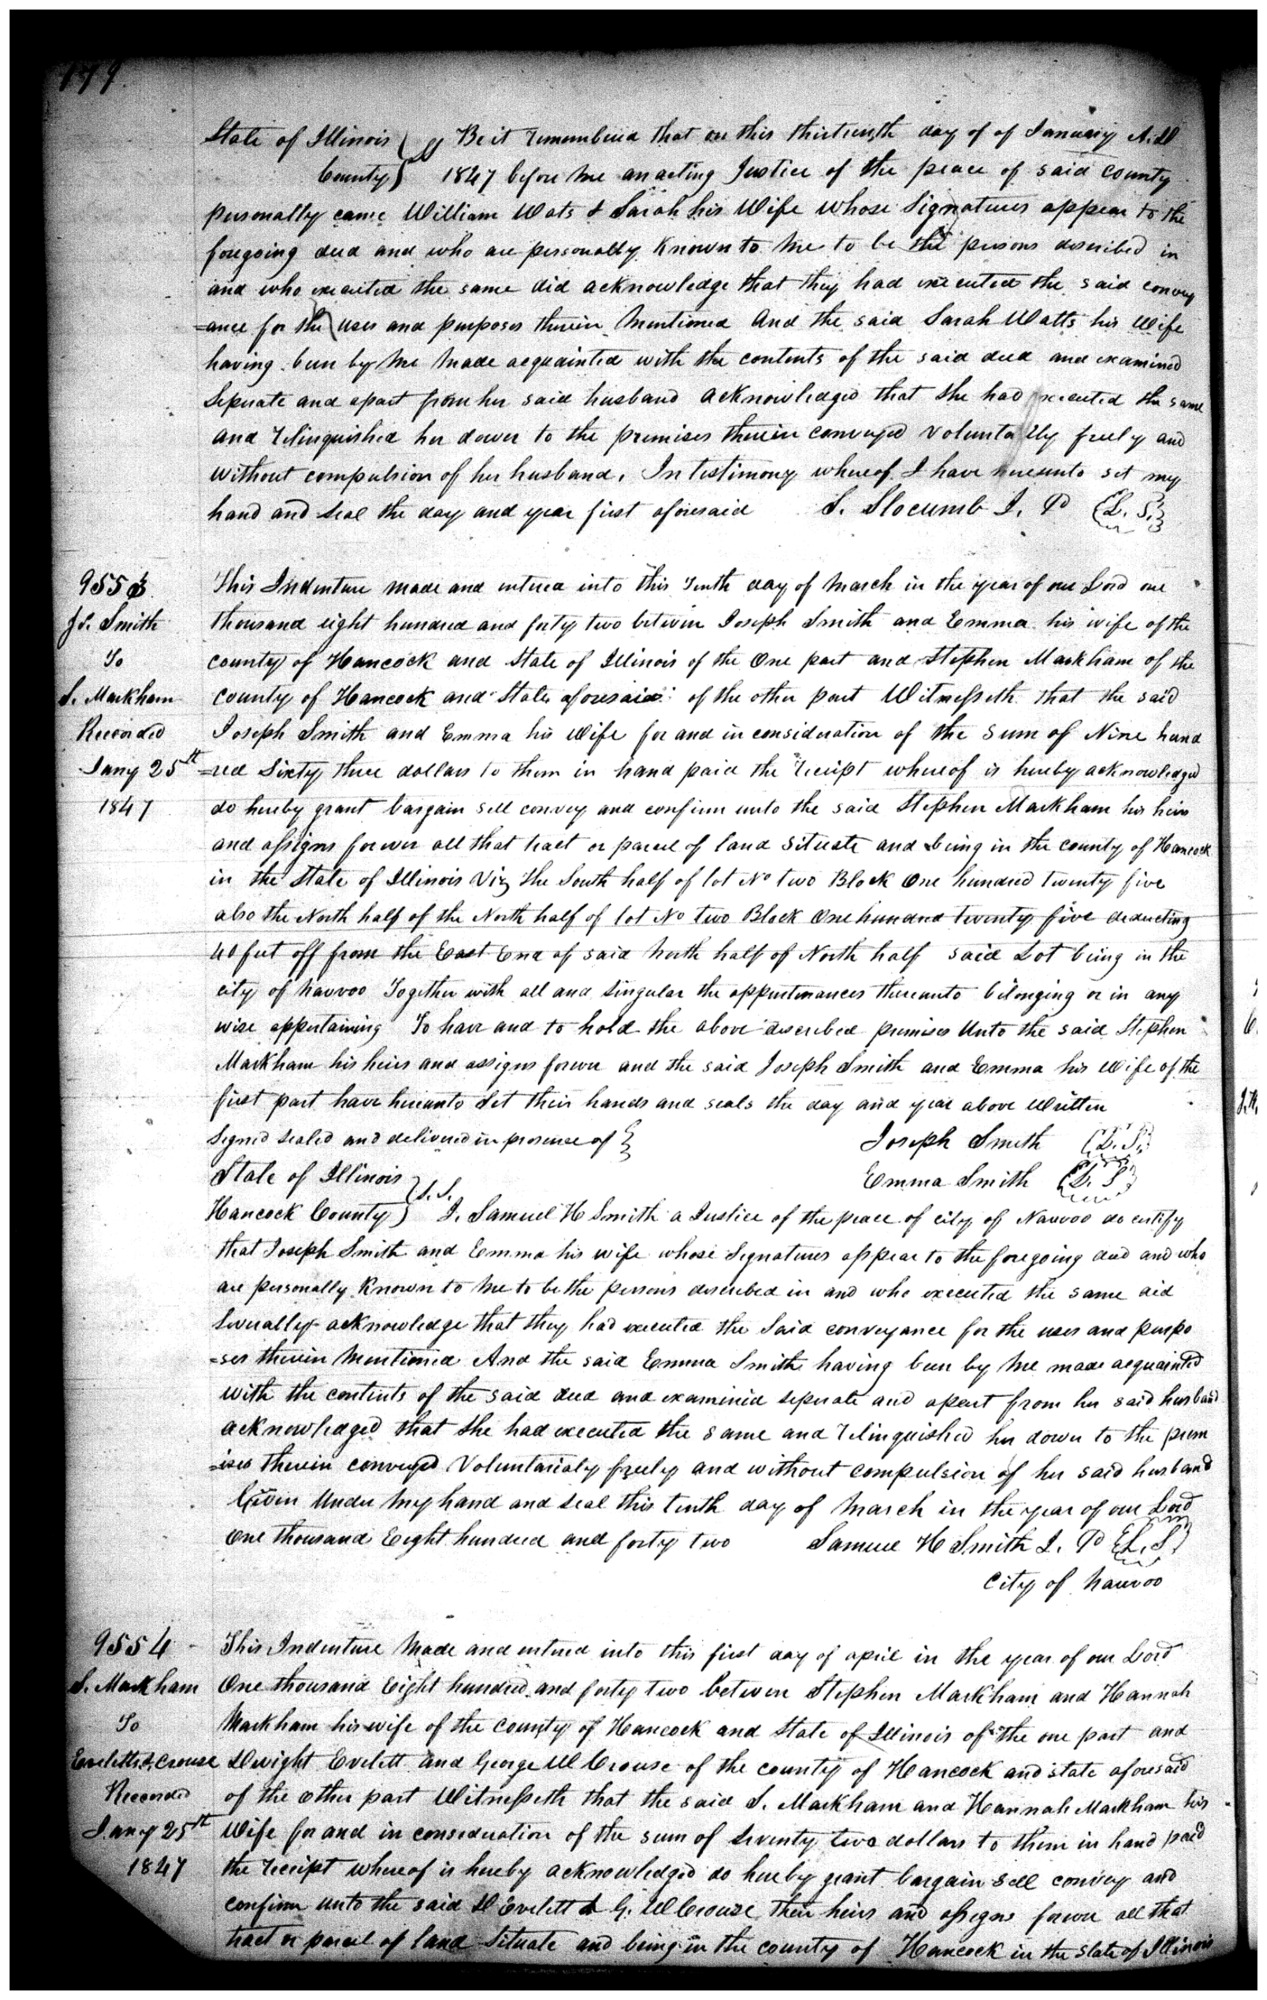 179
State of Illinois } ss Be it remembered that on this thirteenth day of of January A.D
County } 1847 before me an acting Justice of the peace of said county
personally came William Wats & Sarah his Wife whose Signatures appear to the
foregoing deed and who are personally Known to me to be the persons described in
and who executed the same did acknowledge that they had executed the said convey
=ance for the uses and purposes therein Mentioned And the said Sarah Watts his Wife
having been by me made acquainted with the contents of the said deed and examined
Seperate and apart from her said husband acknowledged that she had executed the same
and relinquished her dower to the premises therein conveyed voluntarily freely and
without compulsion of her husband, In testimony whereof I have hereunto set my
hand and seal the day and year first aforesaid S. Slocumb J. P {L. S.}
9553
Jo. Smith
To
S. Markham
Recorded
Jany 25th
1847
This Indenture made and entered into this Tenth day of March in the year of our Lord one
thousand eight hundred and forty two between Joseph Smith and Emma his wife of the
county of Hancock and State of Illinois of the One part and Stephen Markham of the
county of Hancock and State aforesaid of the other part Witnesseth that the said
Joseph Smith and Emma his Wife for and in consideration of the sum of Nine hund
=red Sixty three dollars to them in hand paid the receipt whereof is hereby acknowledged
do hereby grant bargain sell convey and confirm unto the said Stephen Markham his heirs
and assigns forever all that tract or parcel of land situate and being in the county of Hancock
in the State of Illinois Viz the South half of lot No two Block One hundred twenty five
also the North half of the North half of lot No two Block One hundred twenty five deducting
40 feet off from the East End of said North half of North half said Lot being in the
city of Nauvoo Together with all and singular the appertinances thereunto belonging or in any
wise appertaining To have and to hold the above described premises Unto the said Stephen
Markham his heirs and assigns forever and the said Joseph Smith and Emma his Wife of the
first part have hereunto Set their hands and seals the day and year above Written
Signed sealed and delivered in presence of } Joseph Smith {L. S.}
State of Illinois } S.S. Emma Smith {L. S}
Hancock County } I. Samuel H Smith a Justice of the peace of city of Nauvoo do certify
that Joseph Smith and Emma his wife whose Signatures appear to the foregoing deed and who
are personally Known to me to be the persons described in and who executed the same did
Severally acknowledge that they had executed the Said conveyance for the uses and purpo
=ses therein Mentioned And the said Emma Smith having been by me made acquainted
with the contents of the said deed and examined seperate and apart from her said husband
acknowledged that she had executed the same and relinquished her dower to the prem
=ises therein conveyed Voluntarialy freely and without compulsion of her said husband
Given Under my hand and seal this tenth day of March in the year of our Lord
One thousand Eight hundred and forty two Samuel H Smith J. P {L. S.}
City of Nauvoo
9554
S. Markham
To
Everletts & Crouse
Recorded
Jany 25th
1847
This Indenture Made and entered into this first day of april in the year of our Lord
One thousand Eight hundred and forty two between Stephen Markham and Hannah
Markham his wife of the County of Hancock and State of Illinois of the one part and
Dwight Evelett and George W Crouse of the county of Hancock and state aforesaid
of the other part Witnesseth that the said S. Markham and Hannah Markham his
Wife for and in consideration of the sum of Seventy two dollars to them in hand paid
the receipt whereof is hereby acknowledged do hereby grant bargain Sell convey and
confirm unto the said D Evelett & G. W Crouse their heirs and assigns forever all that
tract or parcel of land Situate and being in the county of Hancock in the state of Illinois